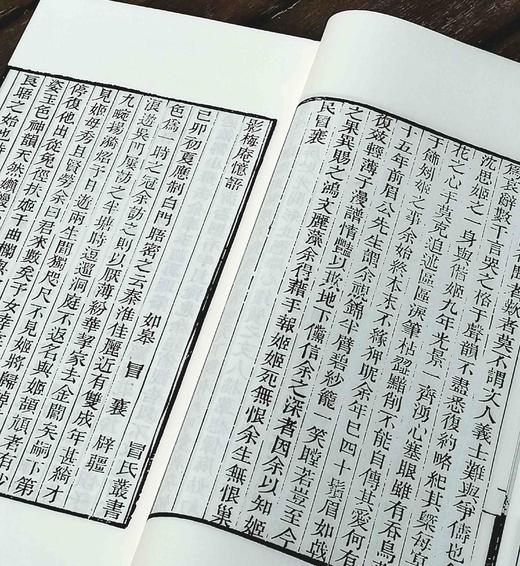 聞者歎者莫不謂文人義士難與爭儔也
為哀辭數千言哭之格于聲韻不盡悉復約略紀其槩每冥
沈思姬之一身與偕姬九年光景一齊湧心塞眼雖有吞鳥
花之心手莫克追述區區淚筆枯澀黯削不能自傳其愛何有
於飾矧姬之事余始終本末不緣狎昵余年已四十鬚眉如戟
十五年前眉公先生謂余視錦半臂碧紗籠一笑瞠若豈至今
復效輕薄子漫譜情豔以欺地下儻信余之深者因余以知姬
之果異賜之鴻文麗藻余得藉手報姬姬死無恨余生無恨巢
民冒襄
影梅庵憶語 冒氏叢書
如皋 冒襄 辟疆
己卯初夏應制白門晤密之云秦淮佳麗近有雙成年甚綺才
色為一時之冠余訪之則以厭薄紛華挈家去金閶矣嗣下第
浪遊吳門屢訪之半塘時逗遛洞庭不返名與姬頡頏者有沙
九畹楊漪炤予日遊兩生間獨咫尺不見姬將歸棹
見姬母秀且賢勞余曰君來數矣予女幸
停復他出從兔徑扶姬于曲欄
姿玉色神韻天然
良晤之始也時